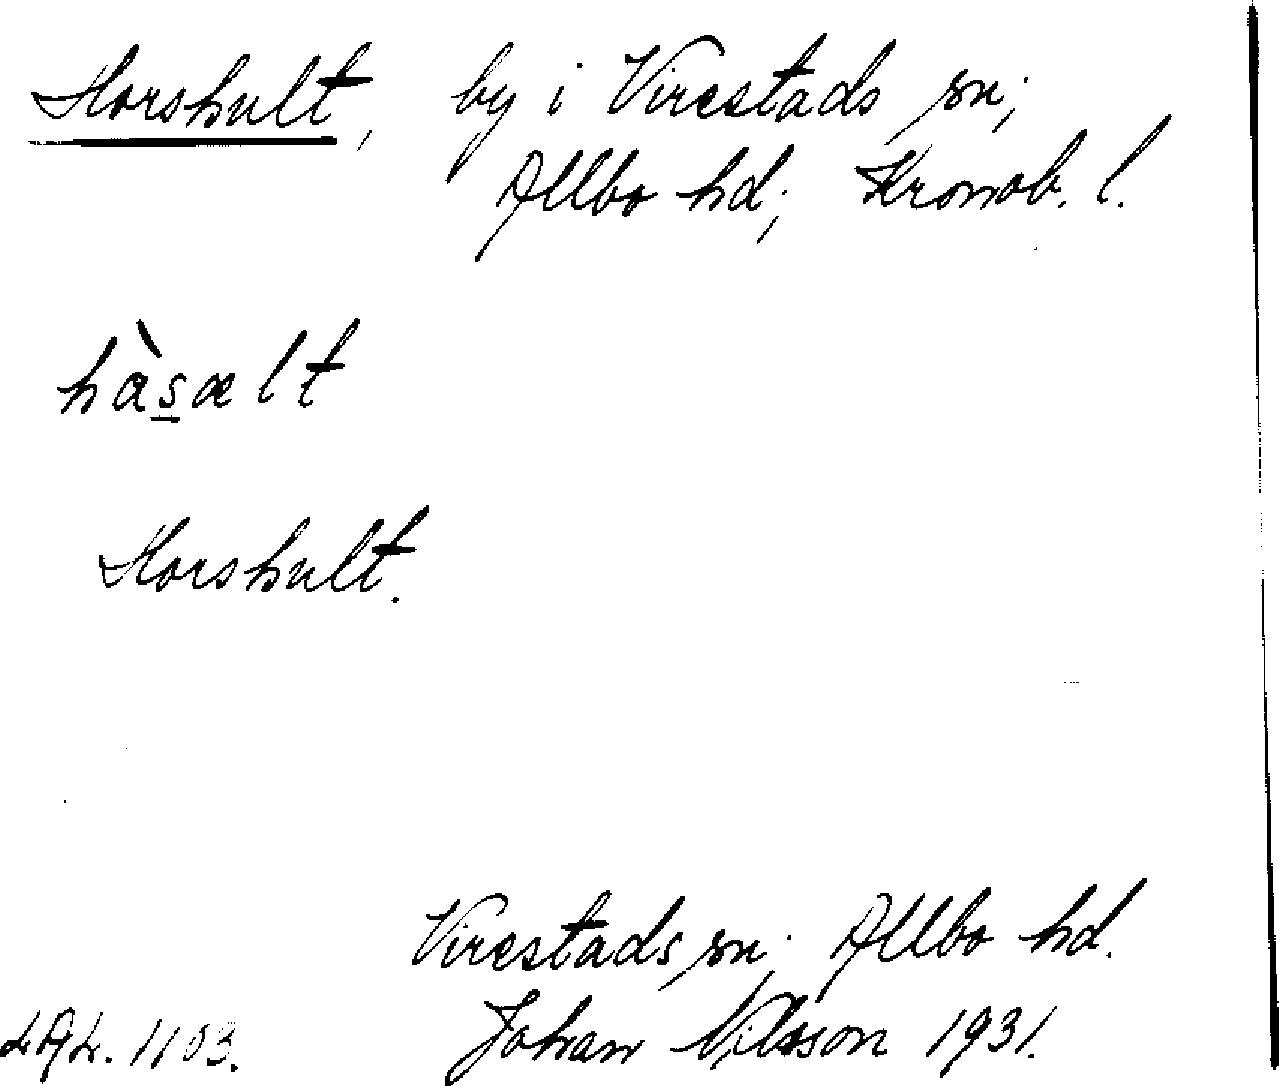 Horshult, by i Virestads sn;
Allbo hd; Kronob. l.
hàs̲ælt
Horshult.
Virestads sn; Allbo hd.
LAL. 1103. Johan Nilsson 1931.